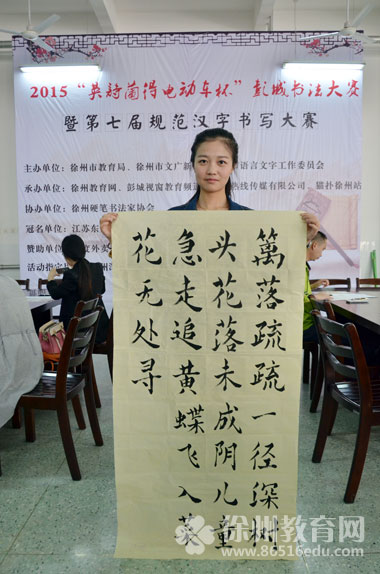 2015“英得电动车杯”彭城书法大赛
暨第七届规范汉字书写大赛
主办单位：徐州市教育局、徐州市文广新 语言文字工作委员会
承办单位：徐州教育网、彭城视窗教育频道 热线传媒有限公司、猫扑徐州站
协办单位：徐州硬笔书法家协会
冠名单位：江苏东
赞助单位：度外卖
活动指定
篱落疏疏一径深树
头花落未成阴儿童
急走追黄蝶飞入菜
花无处寻
徐州教育网
www.86516edu.com